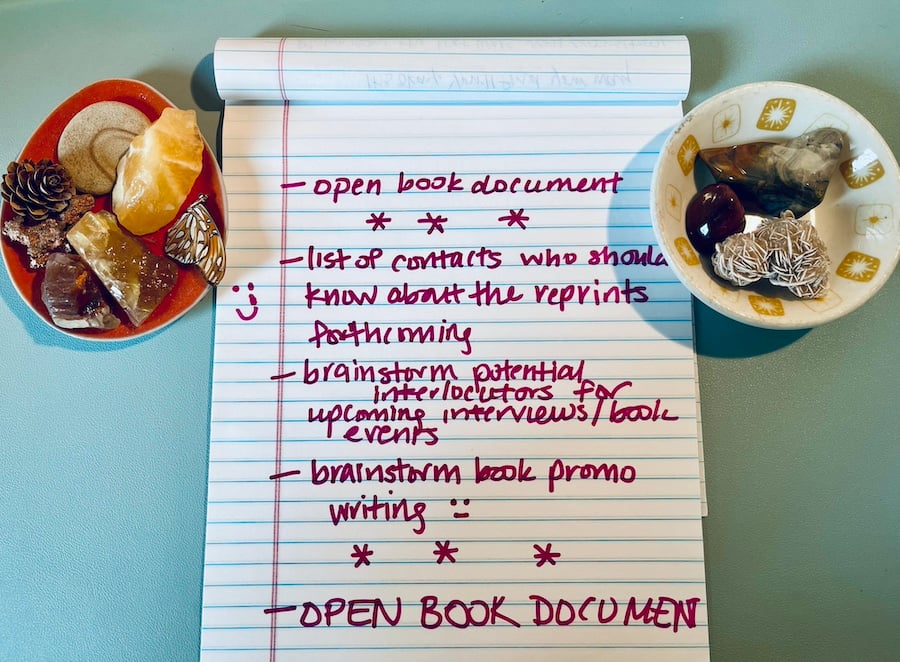 - open book document
* * *
- list of contacts who should
:) know about the reprints
forthcoming
- brainstorm potential
interlocutors for
upcoming interviews/book
events
- brainstorm book promo
writing :)
* * *
- OPEN BOOK DOCUMENT